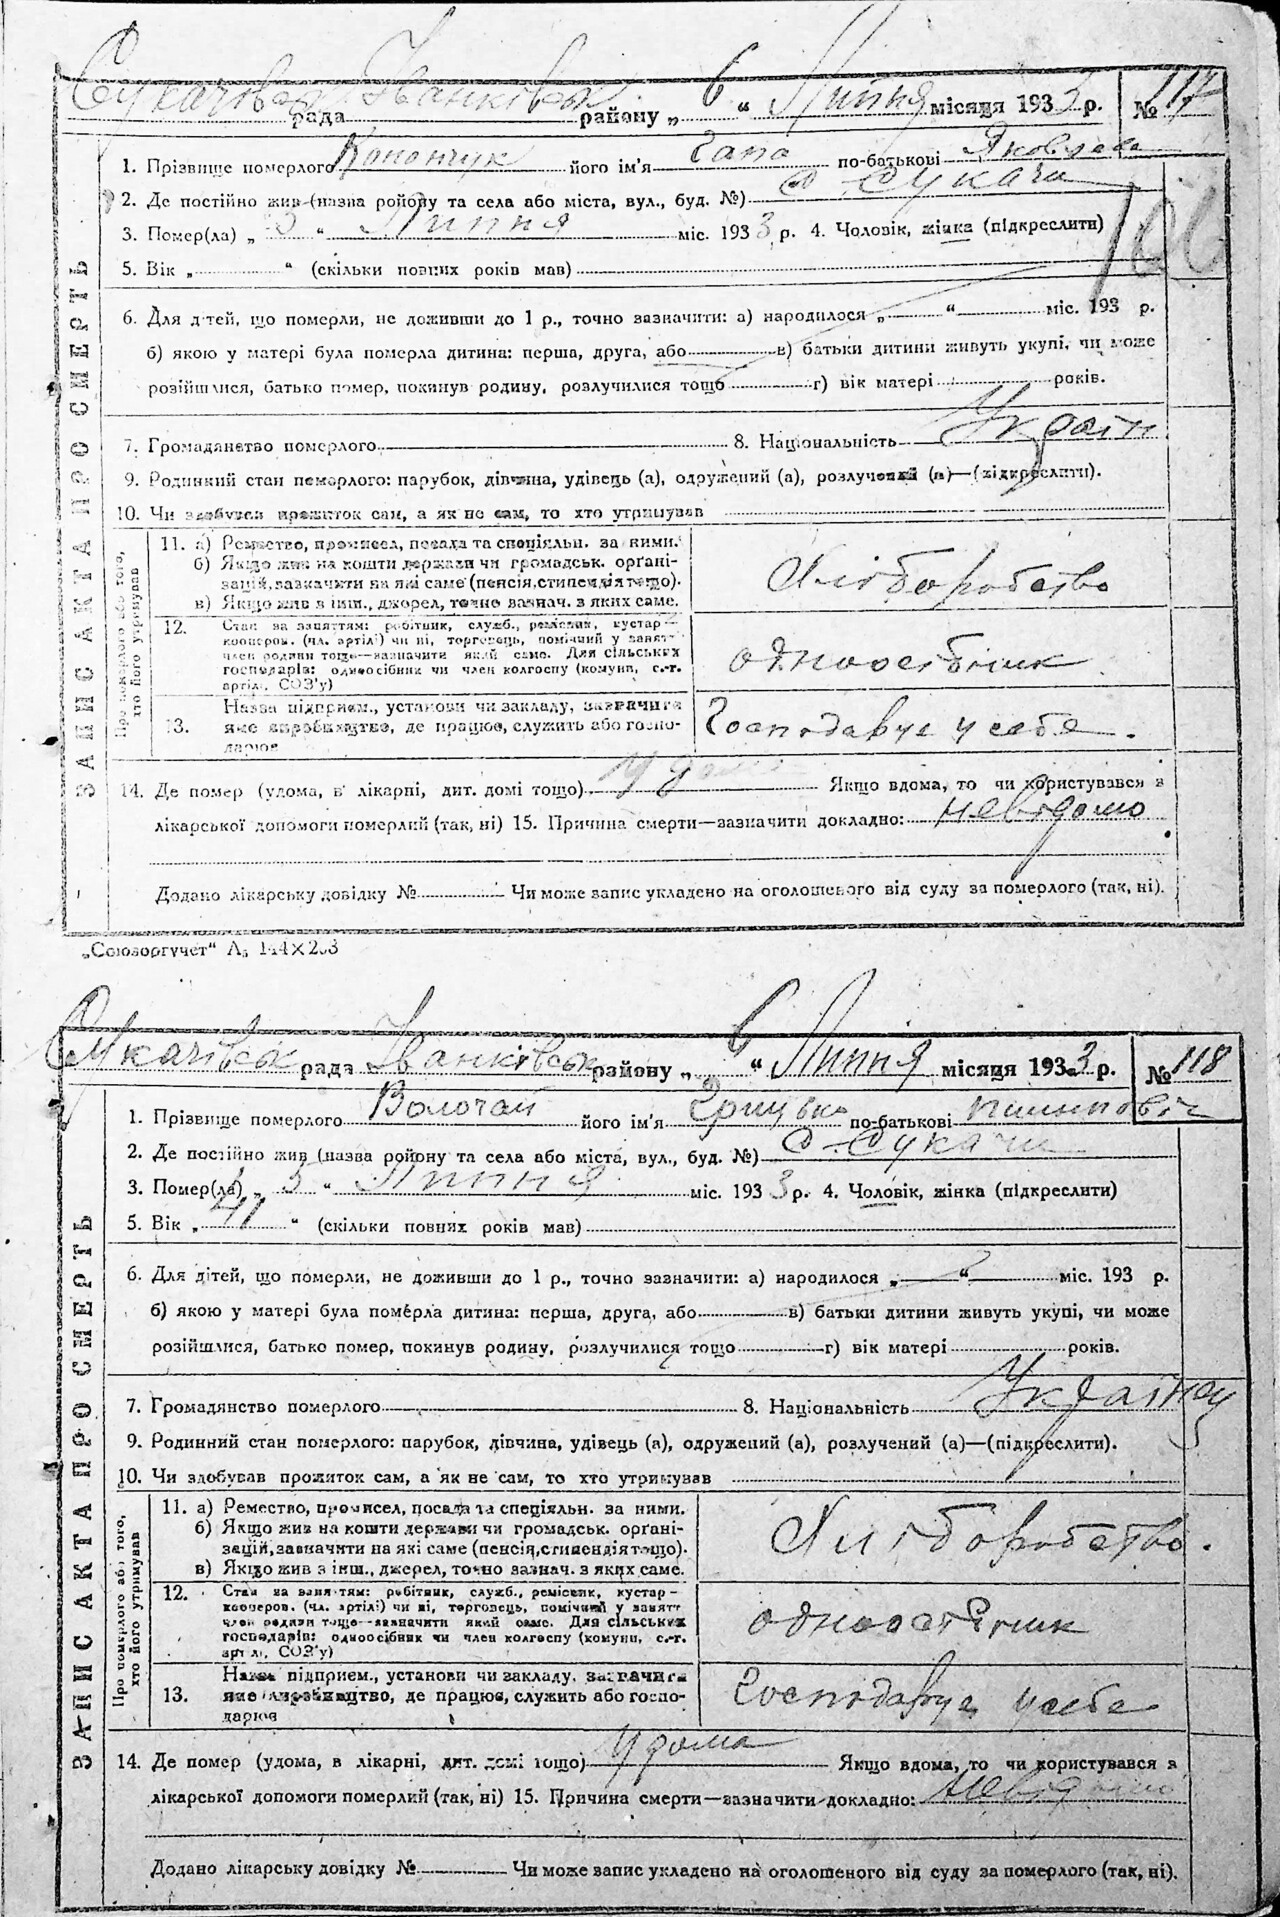 Сукачівська рада Іванківськ району „ 6 “ Липня місяця 1933 р. № 117
1. Прізвище померлого Конончук його ім'я Гапа по-батькові Яковлева
2. Де постійно жив (назва ройону та села або міста, вул., буд. №) с. Сукачи
3. Помер(ла) „ 5 “ Липня міс. 1933 р. 4. Чоловік, жінка (підкреслити)
5. Вік „ “ (скільки повних років мав)
6. Для дітей, що померли, не доживши до 1 р., точно зазначити: а) народилося „ “ міс. 193 р.
б) якою у матері була померла дитина: перша, друга, або в) батьки дитини живуть укупі, чи може
розійшлися, батько помер, покинув родину, розлучилися тощо г) вік матері років.
7. Громадянство померлого 8. Національність Україн
9. Родинний стан померлого: парубок, дівчина, удівець (а), одружений (а), розлучений (а)—(підкреслити).
10. Чи здобував прожиток сам, а як не сам, то хто утримував
ЗАПИС АКТА ПРО СМЕРТЬ
Про померлого або того,
хто його утримував
11. а) Ремество, промисел, посада та спеціяльн. за ними.
б) Якщо жив на кошти держави чи громадськ. орґані-
зацій, зазначити на які саме (пенсія, стипендія тощо).
в) Якщо жив з інш., джерел, точно зазнач. з яких саме.
Хліборобство
12. Стан за заняттям: робітник, служб., ремісник, кустар—
кооперов. (чл. артілі) чи ні, торговець, помічний у занятт
член родини тощо—зазначити який саме. Для сільських
господарів: одноосібник чи член колгоспу (комуни, с.-г.
артілі, СОЗ'у)
одноосібник
13. Назва підприєм., установи чи закладу, зазначити
яке виробництво, де працює, служить або госпо-
дарює
Господарує у себе.
14. Де помер (удома, в лікарні, дит. домі тощо) у дома Якщо вдома, то чи користувався з
лікарської допомоги померлий (так, ні) 15. Причина смерти—зазначити докладно: невідомо
Додано лікарську довідку № Чи може запис укладено на оголошеного від суду за померлого (так, ні).
„Союзоргучет“ А₅ 144×203
Сукачівськ рада Іванківськ району „ 6 “ Липня місяця 1933 р. № 118
1. Прізвище померлого Волочай його ім'я Грицько по-батькові
2. Де постійно жив (назва ройону та села або міста, вул., буд. №) с. Сукачи
3. Помер(ла) „ 5 “ Липня міс. 1933 р. 4. Чоловік, жінка (підкреслити)
5. Вік „ 41 “ (скільки повних років мав)
6. Для дітей, що померли, не доживши до 1 р., точно зазначити: а) народилося „ “ міс. 193 р.
б) якою у матері була померла дитина: перша, друга, або в) батьки дитини живуть укупі, чи може
розійшлися, батько помер, покинув родину, розлучилися тощо г) вік матері років.
7. Громадянство померлого 8. Національність Українец
9. Родинний стан померлого: парубок, дівчина, удівець (а), одружений (а), розлучений (а)—(підкреслити).
10. Чи здобував прожиток сам, а як не сам, то хто утримував
ЗАПИС АКТА ПРО СМЕРТЬ
Про померлого або того,
хто його утримував
11. а) Ремество, промисел, посада та спеціяльн. за ними.
б) Якщо жив на кошти держави чи громадськ. орґані-
зацій, зазначити на які саме (пенсія, стипендія тощо).
в) Якщо жив з інш., джерел, точно зазнач. з яких саме.
Хліборобство.
12. Стан за заняттям: робітник, служб., ремісник, кустар—
кооперов. (чл. артілі) чи ні, торговець, помічний у занятт
член родини тощо—зазначити який саме. Для сільських
господарів: одноосібник чи член колгоспу (комуни, с.-г.
артілі, СОЗ'у)
одноосібник
13. Назва підприєм., установи чи закладу, зазначити
яке виробництво, де працює, служить або госпо-
дарює
Господарує у себе
14. Де помер (удома, в лікарні, дит. домі тощо) у дома Якщо вдома, то чи користувався з
лікарської допомоги померлий (так, ні) 15. Причина смерти—зазначити докладно: невідомо
Додано лікарську довідку № Чи може запис укладено на оголошеного від суду за померлого (так, ні).